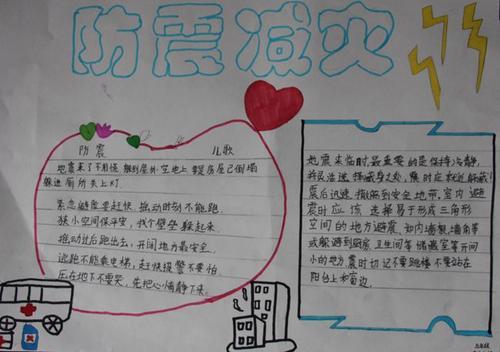 防震减灾
防震 儿歌
地震来了不用慌 躲到屋外空地上 要是房屋已倒塌
躲进厕所关上灯
紧急避险要赶快 摇动时刻不能跑
狭小空间保平安 找个壁垒躲起来
摇动过后跑出去 开阔地方最安全
逃跑不能乘电梯 赶快报警不要怕
压在地下不要哭 先把心情静下来
地震来临时,最重要的是保持冷静,
震后迅速撤离到安全地带,室内避
震时应该选择易于形成三角形
空间的地方避震,如内墙根,墙角等
或躲避到厨房卫生间等储藏室等开间
小的地方震时切记不要跳楼不要站在
阳台上和窗边.